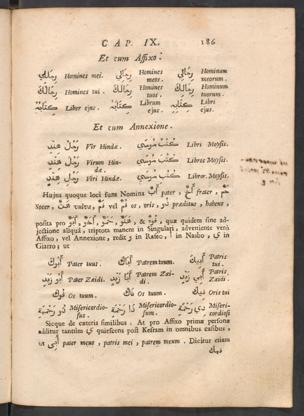 CAP. IX. 186
Et cum Affixo:
رجالي Homines mei. رجالي Homines meos. رجالي Hominum meorum.
رجالك Homines tui. رجالك Homines tuos. رجالك Hominum tuorum.
كتابه Liber ejus. كتابه Librum ejus. كتابه Libri ejus.
Et cum Annexione.
رجل هند Vir Hindæ. كتب موسى Libri Moysis.
رجل هند Virum Hindæ. كتب موسى Libros Moysis.
رجل هند Viri Hindæ. كتب موسى Libror. Moysis.
Hujus quoque loci sunt Nomina أب pater, أخ frater, حم
Socer, هن vulva, فم vel فو os, oris, ذو præditus, habens,
posita pro أبو, &c. quæ quidem sine adjectione
aliqua, triptota manent in Singulari, adveniente verò
Affixo, vel Annexione, redit و in Rafeo, ا in Nasbo, ي in
Giarro; ut
أبوك Pater tuus. أباك Patrem tuum. أبيك Patris tui.
أبو زيد Pater Zaidi. أبا زيد Patrem Zaidi. أبي زيد Patris Zaidi.
فوك Os tuum. فاك Os tuum. فيك Oris tui
ذو رحمة Misericordiosus. ذا رحمة Misericordiosum. ذي رحمة Misericordiosi
Sicque de cæteris similibus. At pro Affixo primæ personæ
additur tantùm ي quiescens post Kesram in omnibus casibus,
ut أبي pater meus, patris mei, patrem meum. Dicitur etiam